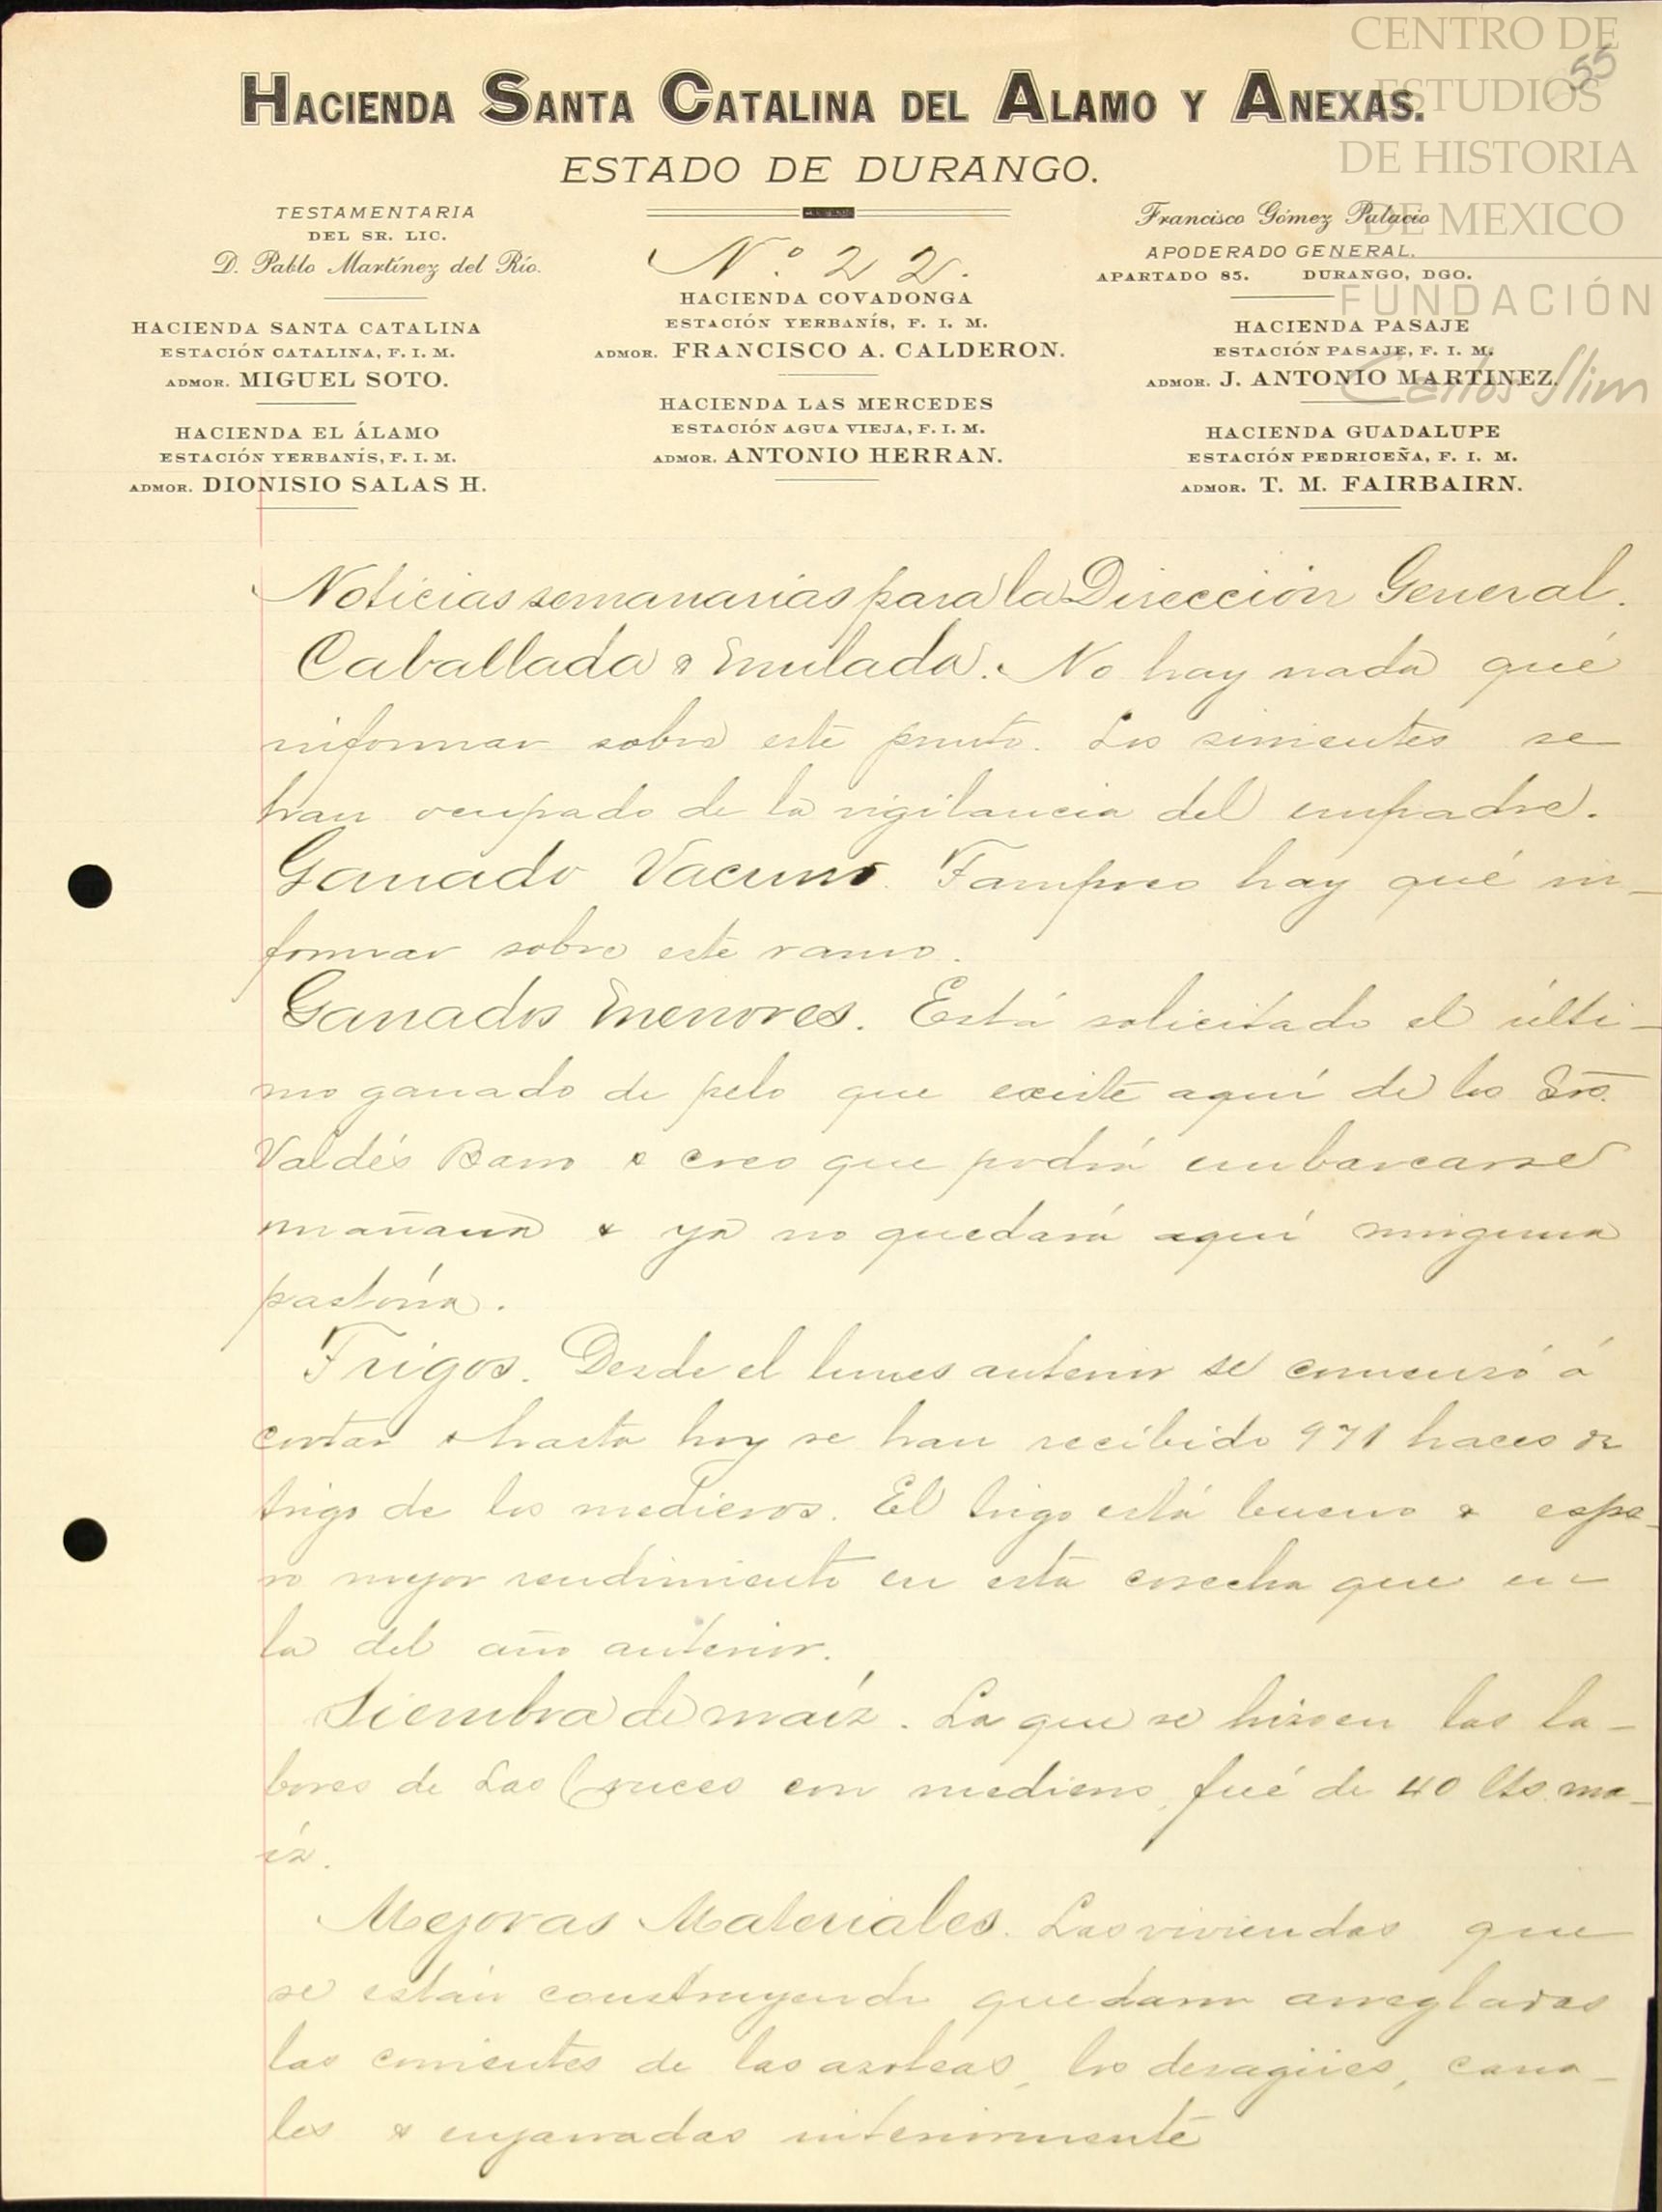 CENTRO DE
ESTUDIOS
DE HISTORIA
DE MEXICO
FUNDACIÓN
Carlos Slim
55
HACIENDA SANTA CATALINA DEL ALAMO Y ANEXAS.
ESTADO DE DURANGO.
TESTAMENTARIA
DEL SR. LIC.
D. Pablo Martínez del Río.
HACIENDA SANTA CATALINA
ESTACIÓN CATALINA, F. I. M.
ADMOR. MIGUEL SOTO.
HACIENDA EL ÁLAMO
ESTACIÓN YERBANÍS, F. I. M.
ADMOR. DIONISIO SALAS H.
Nº 22.
HACIENDA COVADONGA
ESTACIÓN YERBANÍS, F. I. M.
ADMOR. FRANCISCO A. CALDERON.
HACIENDA LAS MERCEDES
ESTACIÓN AGUA VIEJA, F. I. M.
ADMOR. ANTONIO HERRAN.
Francisco Gómez Palacio
APODERADO GENERAL.
APARTADO 85. DURANGO, DGO.
HACIENDA PASAJE
ESTACIÓN PASAJE, F. I. M.
ADMOR. J. ANTONIO MARTINEZ.
HACIENDA GUADALUPE
ESTACIÓN PEDRICEÑA, F. I. M.
ADMOR. T. M. FAIRBAIRN.
Noticias semanarias para la Dirección General.
Caballada & mulada. No hay nada qué
informar sobre este punto. Los sirvientes se
han ocupado de la vigilancia del empadre.
Ganado Vacuno. Tampoco hay qué in-
formar sobre este ramo.
Ganados menores. Está solicitado el últi-
mo ganado de pelo que existe aquí de los Srs.
Valdés & creo que podrá embarcarse
mañana & ya no quedará aquí ninguna
pastoría.
Trigos. Desde el lunes anterior se comenzó á
cortar & hasta hoy se han recibido 971 haces de
trigo de los medieros. El trigo está bueno & espe-
ro mejor rendimiento en esta cosecha que en
la del año anterior.
Siembra de maíz. La que se hizo en las la-
bores de Las Cruces con medieros, fué de 40 lts. ma-
íz.
Mejoras Materiales. Las viviendas que
se están construyendo quedaron arregladas
las corrientes de las azoteas, los desagües, cana-
les & enjarradas interiormente